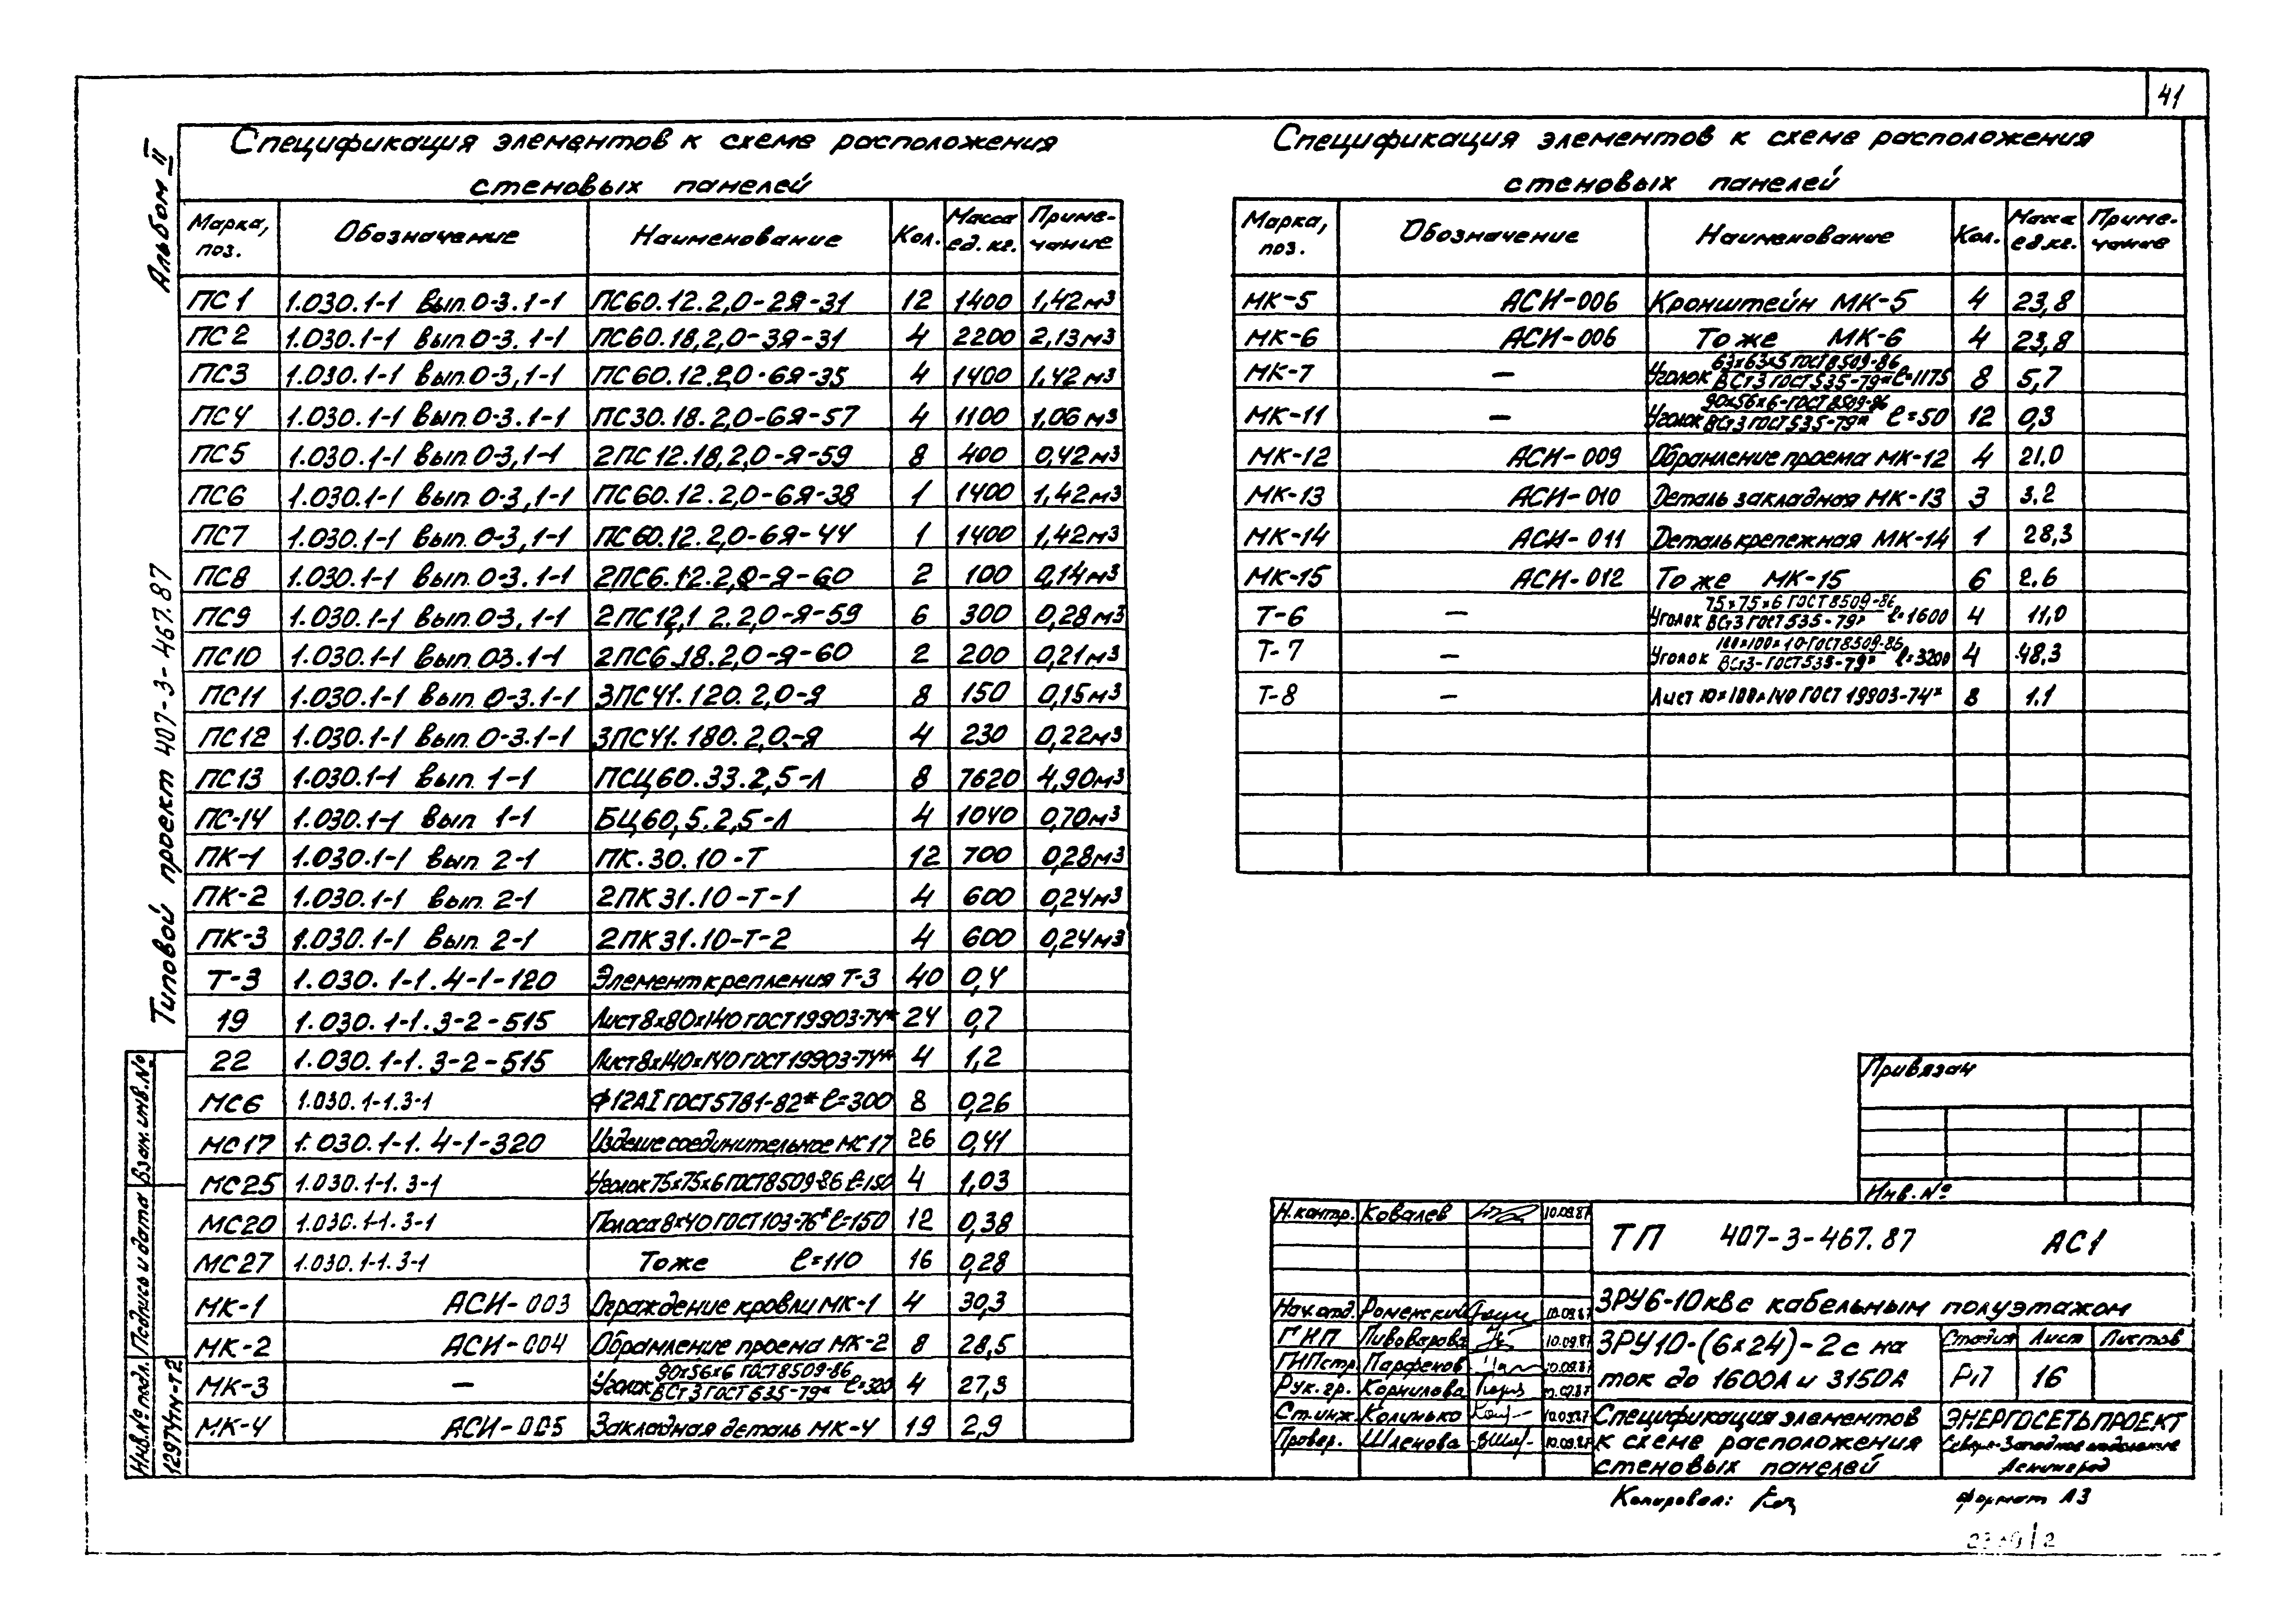 41
Альбом II
Типовой проект 407-3-467.87
Спецификация элементов к схеме расположения
стеновых панелей
Марка, поз. Обозначение Наименование Кол. Масса ед. кг. Приме-чание
ПС1 1.030.1-1 вып. 0-3. 1-1 ПС60.12.2,0-2Я-31 12 1400 1,42м³
ПС2 1.030.1-1 вып. 0-3. 1-1 ПС60.18,2,0-3Я-31 4 2200 2,13м³
ПС3 1.030.1-1 вып. 0-3, 1-1 ПС60.12.2,0-6Я-35 4 1400 1,42м³
ПС4 1.030.1-1 вып. 0-3. 1-1 ПС30.18.2,0-6Я-57 4 1100 1,06м³
ПС5 1.030.1-1 вып. 0-3, 1-1 2ПС12.18,2,0-Я-59 8 400 0,42м³
ПС6 1.030.1-1 вып. 0-3, 1-1 ПС60.12.2,0-6Я-38 1 1400 1,42м³
ПС7 1.030.1-1 вып. 0-3, 1-1 ПС60.12.2,0-6Я-44 1 1400 1,42м³
ПС8 1.030.1-1 вып. 0-3. 1-1 2ПС6.12.2,0-Я-60 2 100 0,14м³
ПС9 1.030.1-1 вып. 0-3, 1-1 2ПС12,1 2.2,0-Я-59 6 300 0,28м³
ПС10 1.030.1-1 вып. 03.1-1 2ПС6.18.2,0-Я-60 2 200 0,21м³
ПС11 1.030.1-1 вып. 0-3.1-1 3ПС41.120.2,0-Я 8 150 0,15м³
ПС12 1.030.1-1 вып. 0-3.1-1 3ПС41.180.2,0-Я 4 230 0,22м³
ПС13 1.030.1-1 вып. 1-1 ПСЦ60.33.2,5-Л 8 7620 4,90м³
ПС-14 1.030.1-1 вып 1-1 БЦ60,5.2,5-Л 4 1040 0,70м³
ПК-1 1.030.1-1 вып 2-1 ПК.30.10-Т 12 700 0,28м³
ПК-2 1.030.1-1 вып. 2-1 2ПК31.10-Т-1 4 600 0,24м³
ПК-3 1.030.1-1 вып. 2-1 2ПК31.10-Т-2 4 600 0,24м³
Т-3 1.030.1-1.4-1-120 Элемент крепления Т-3 40 0,4
19 1.030.1-1.3-2-515 Лист 8х80х140 ГОСТ 19903-74* 24 0,7
22 1.030.1-1.3-2-515 Лист 8х140х140 ГОСТ 19903-74* 4 1,2
МС6 1.030.1-1.3-1 Ф12АI ГОСТ 5781-82* ℓ=300 8 0,26
МС17 1.030.1-1.4-1-320 Изделие соединительное МС17 26 0,41
МС25 1.030.1-1.3-1 Уголок 75х75х6 ГОСТ 8509-86 ℓ=150 4 1,03
МС20 1.030.1-1.3-1 Полоса 8х40 ГОСТ 103-76* ℓ=150 12 0,38
МС27 1.030.1-1.3-1 То же ℓ=110 16 0,28
МК-1 АСИ-003 Ограждение кровли МК-1 4 30,3
МК-2 АСИ-004 Обрамление проема МК-2 8 28,5
МК-3 — Уголок 90х56х6 ГОСТ 8509-86 / ВСт3 ГОСТ 535-79* 4 27,3
МК-4 АСИ-005 Закладная деталь МК-4 19 2,9
Спецификация элементов к схеме расположения
стеновых панелей
Марка, поз. Обозначение Наименование Кол. Масса ед.кг. Приме-чание
МК-5 АСИ-006 Кронштейн МК-5 4 23,8
МК-6 АСИ-006 То же МК-6 4 23,8
МК-7 — Уголок 63х63х5 ГОСТ 8509-86 / ВСт3 ГОСТ 535-79* ℓ=1175 8 5,7
МК-11 — Уголок 90х56х6-ГОСТ 8509-86 / ВСт3 ГОСТ 535-79* ℓ=50 12 0,3
МК-12 АСИ-009 Обрамление проема МК-12 4 21,0
МК-13 АСИ-010 Деталь закладная МК-13 3 3.2
МК-14 АСИ-011 Деталь крепежная МК-14 1 28,3
МК-15 АСИ-012 То же МК-15 6 2.6
Т-6 — Уголок 75х75х6 ГОСТ 8509-86 / ВСт3 ГОСТ 535-79* ℓ=1600 4 11,0
Т-7 — Уголок 100х100х10-ГОСТ 8509-86 / ВСт3-ГОСТ 535-79* ℓ=3200 4 48,3
Т-8 — Лист 10х100х140 ГОСТ 19903-74* 8 1.1
Привязан
Инв. №
Взам. инв. №
Подпись и дата
Инв. № подл.
12974тм-т2
Н.контр. Ковалев 10.09.87
Нач.отд. Роменский 10.09.87
ГИП Пивоварова 10.09.87
ГИПстр. Парфенов 10.09.87
Рук.гр. Корнилова 10.09.87
Ст.инж. Колинько 10.09.87
Провер. Шленова 10.09.87
ТП 407-3-467.87 АС1
ЗРУ6-10кв с кабельным полуэтажом
ЗРУ10-(6х24)-2с на
ток до 1600А и 3150А
Стадия Лист Листов
РП 16
Спецификация элементов
к схеме расположения
стеновых панелей
ЭНЕРГОСЕТЬПРОЕКТ
Северо-Западное отделение
Ленинград
Копировал:
Формат А3